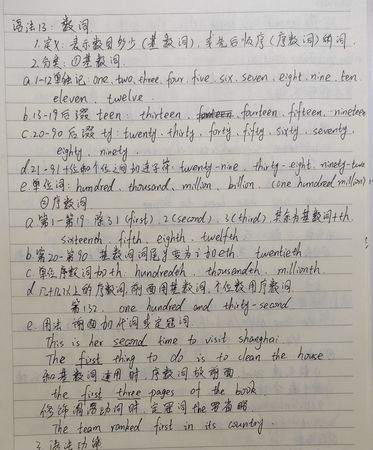 语法13：数词
1.定义：表示数目多少（基数词），或先后顺序（序数词）的词.
2.分类：①基数词
a.1-12单独记：one, two, three, four, five, six, seven, eight, nine, ten
eleven, twelve.
b.13-19后缀teen: thirteen, fourteen, fifteen, nineteen
c.20-90后缀ty: twenty, thirty, forty, fifty, sixty, seventy,
eighty, ninety.
d.21-91十位和个位之间加连字符. twenty-nine, thirty-eight, ninety-two
e.单位词: hundred, thousand, million, billion. (one hundred million)
②序数词
a.第1-第19：除 1(first), 2(second), 3(third), 其余为基数词+th.
sixteenth, fifth, eighth, twelfth
b.第20-第90: 基数词词尾y变为i加eth. twentieth
c.单位序数词加th. hundredth, thousandth, millionth.
d.几十几以上的序数词,前面用基数词,个位数用序数词
第132. one hundred and thirty-second
e.用法：前面加代词或定冠词
This is her second time to visit shanghai
The first thing to do is to clean the house
和基数词连用时,序数词放前面
the first three pages of the book
修饰谓语动词时,定冠词the要省略
The team ranked first in its country.
3.语法功能